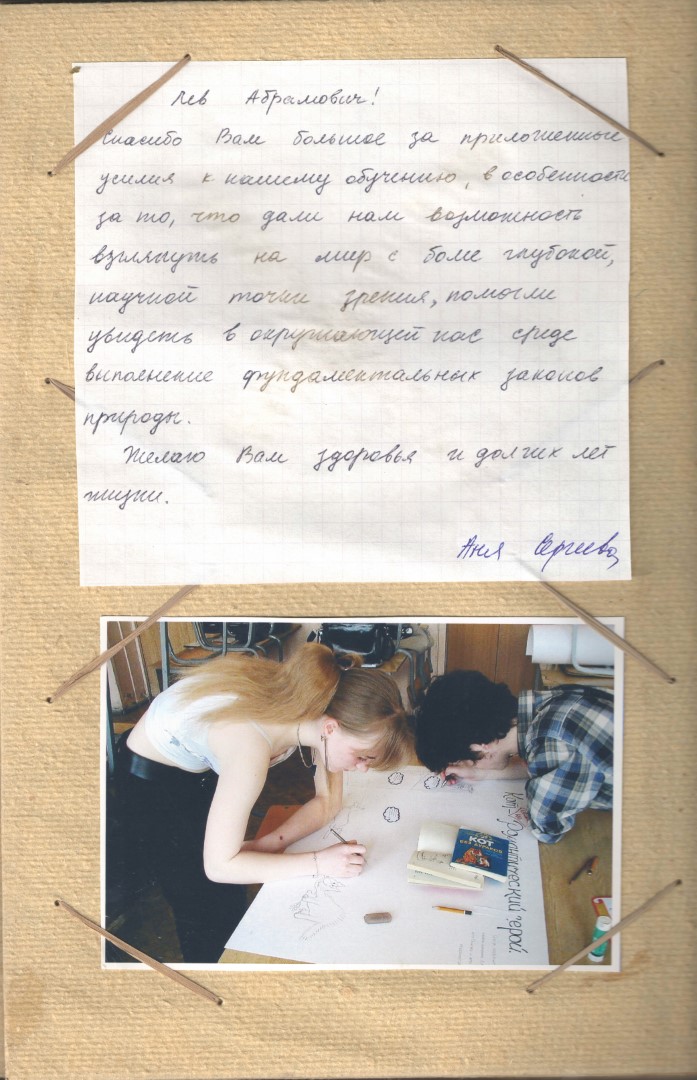 Лев Абрамович!
Спасибо Вам большое за приложенные
усилия к нашему обучению, в особенности
за то, что дали нам возможность
взглянуть на мир с более глубокой,
научной точки зрения, помогли
увидеть в окружающей нас среде
выполнение фундаментальных законов
природы.
Желаю Вам здоровья и долгих лет
жизни.
Аня Сергеева
КОТ
герой